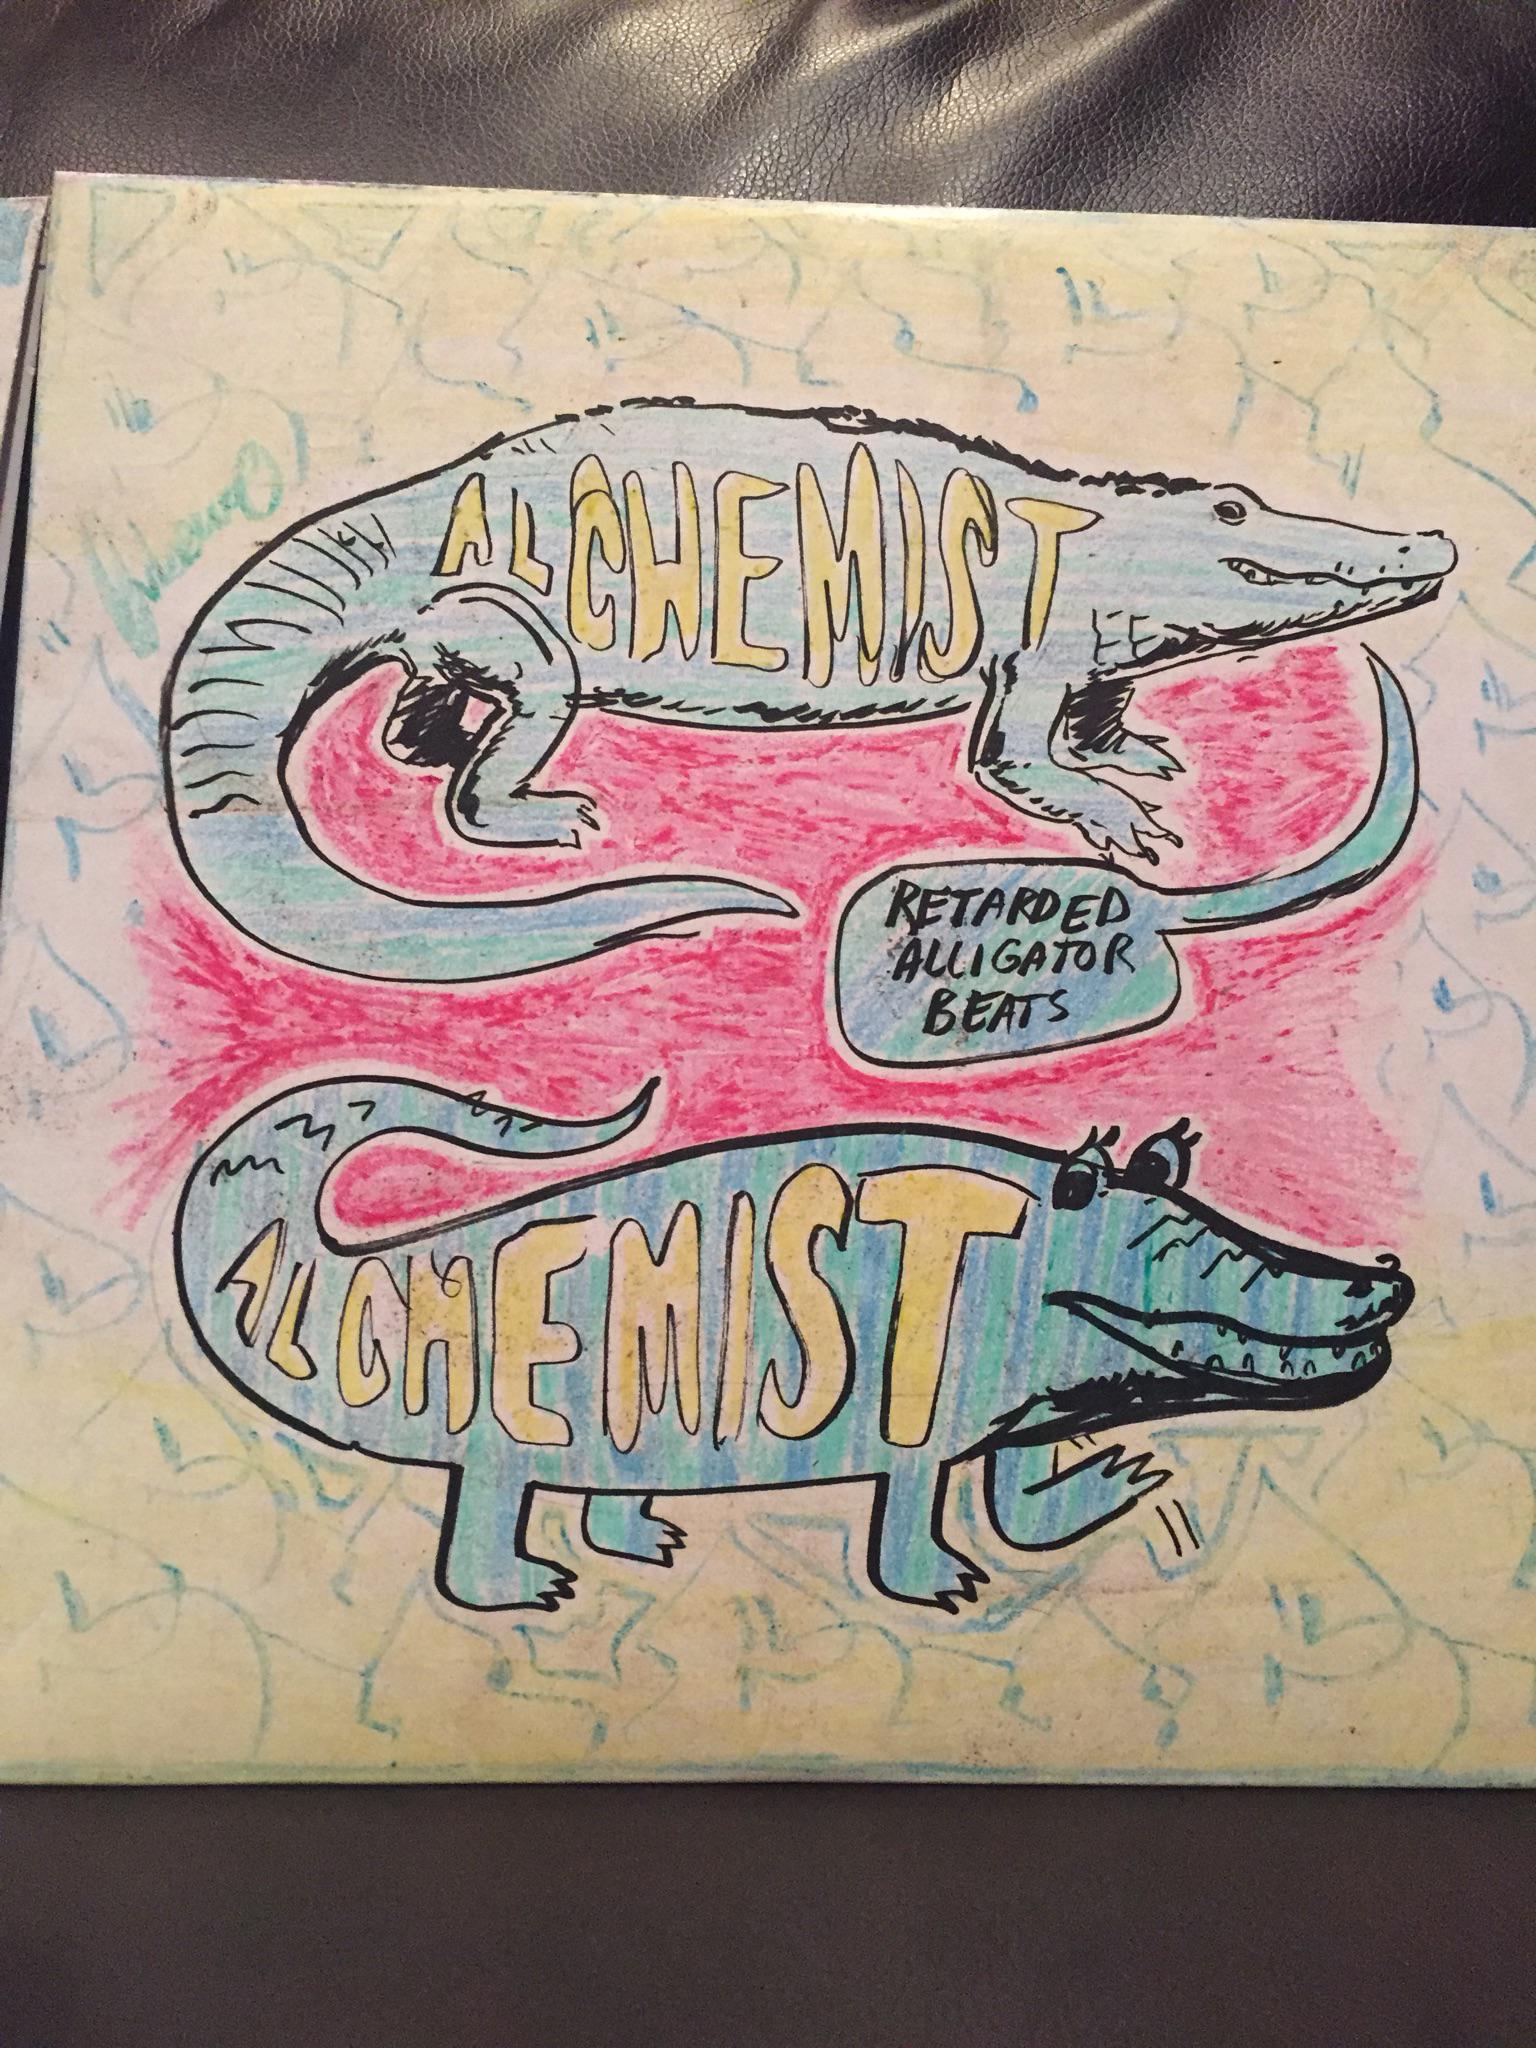 ALCHEMIST
RETARDED
ALLIGATOR
BEATS
ALCHEMIST